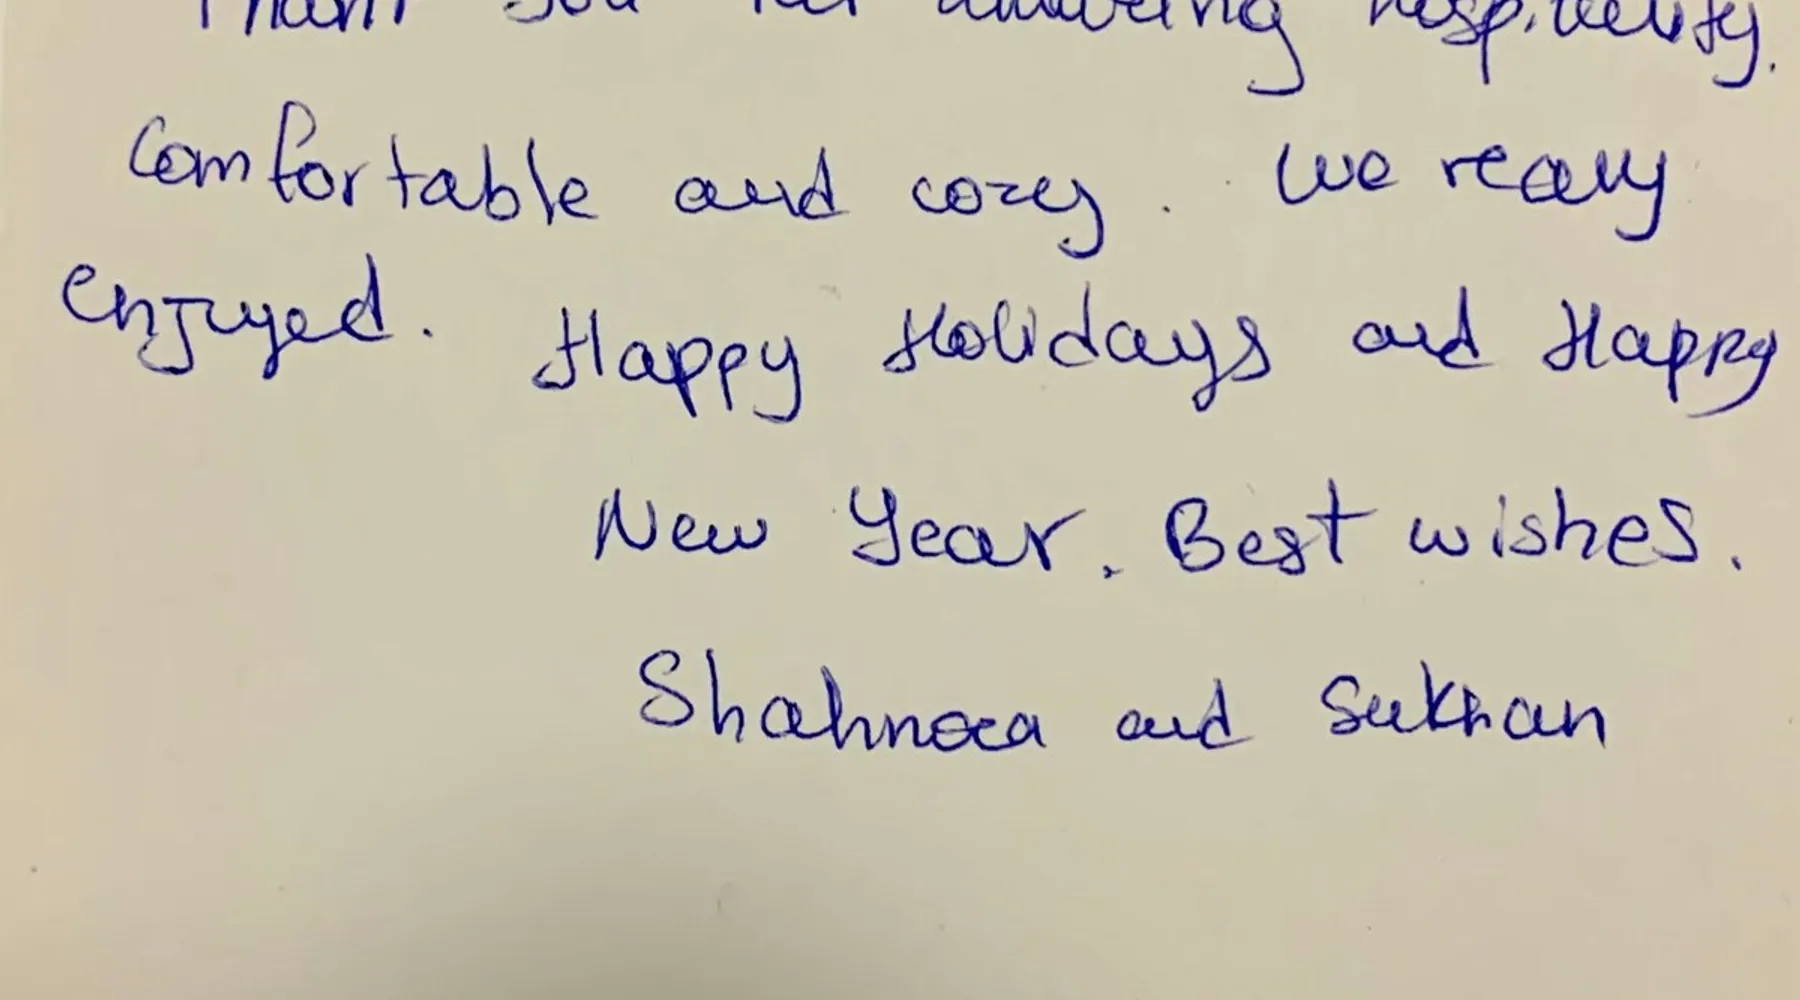 Thank you for amazing hospitality.
Comfortable and cozy. We really
enjoyed. Happy Holidays and Happy
New Year. Best wishes.
Shahnoza and Sukhan